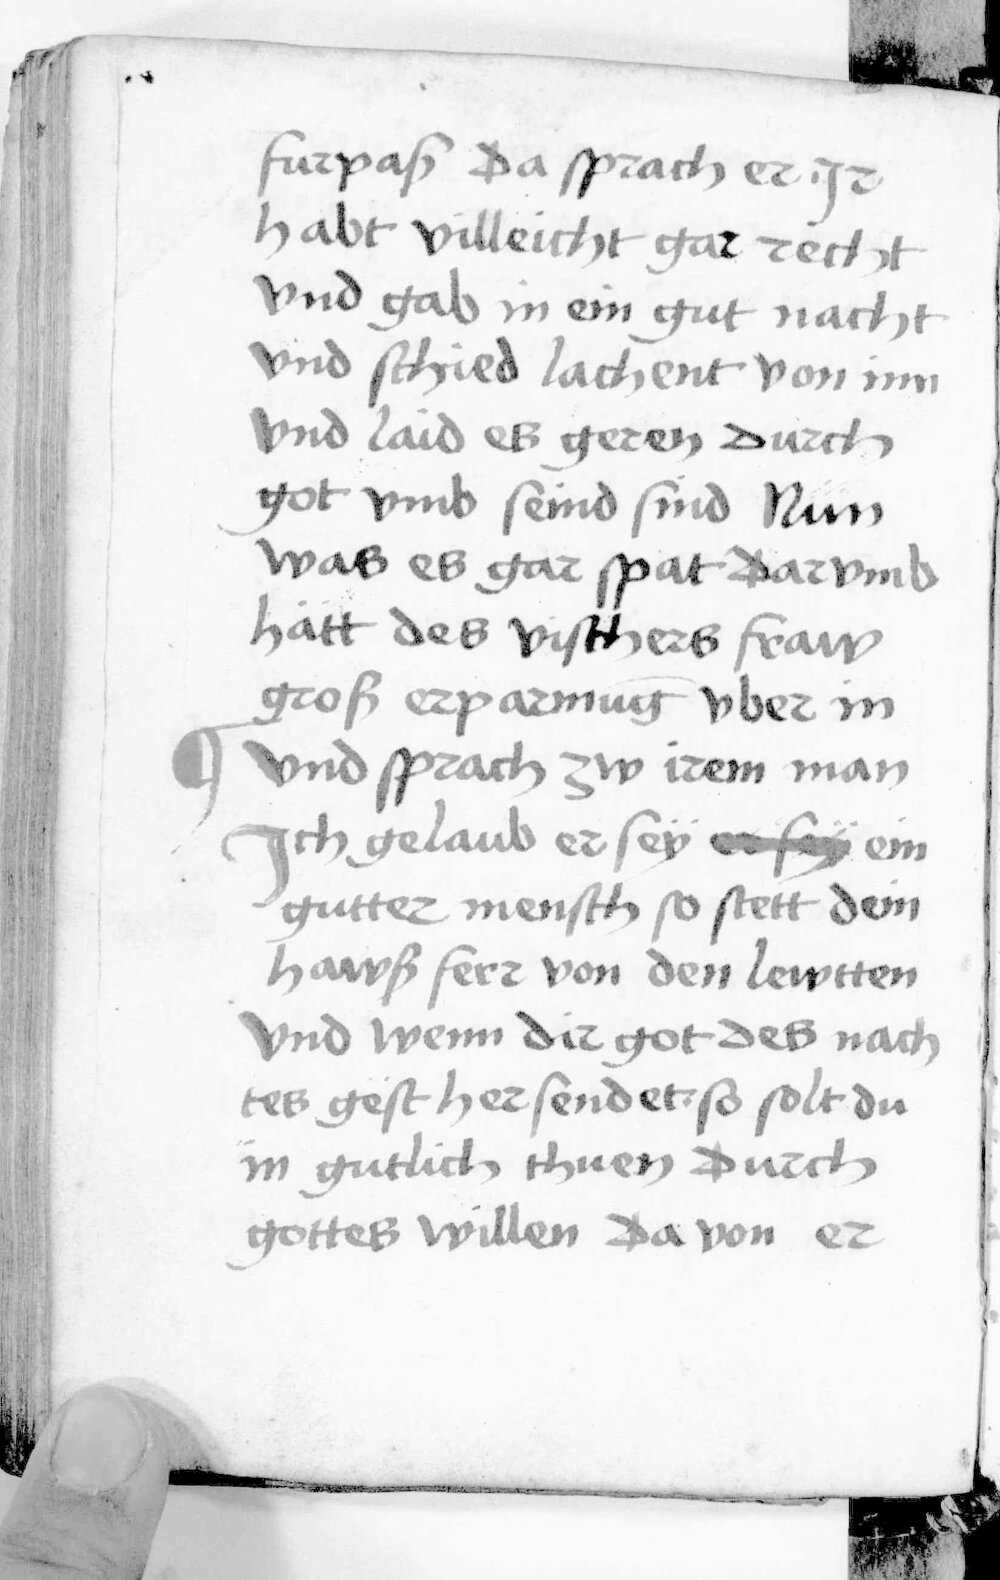 furpaß Da sprach er Jr
habt villeicht gar recht
vnd gab in ein gut nacht
vnd schied lachent von inn
vnd laid es geren durch
got vmb seind sind Nun
was es gar spat Darvmb
hätt des vischers fraw
groß erparmūg vber in
¶ vnd sprach zw irem man
Ich gelaub er seÿ er seÿ ein
gutter mensch so stett dein
hawß ferr von den lewtten
vnd wenn dir got des nach
tes gëst her sendet so solt du
in gutlich thuen Durch
gottes willen Da von er